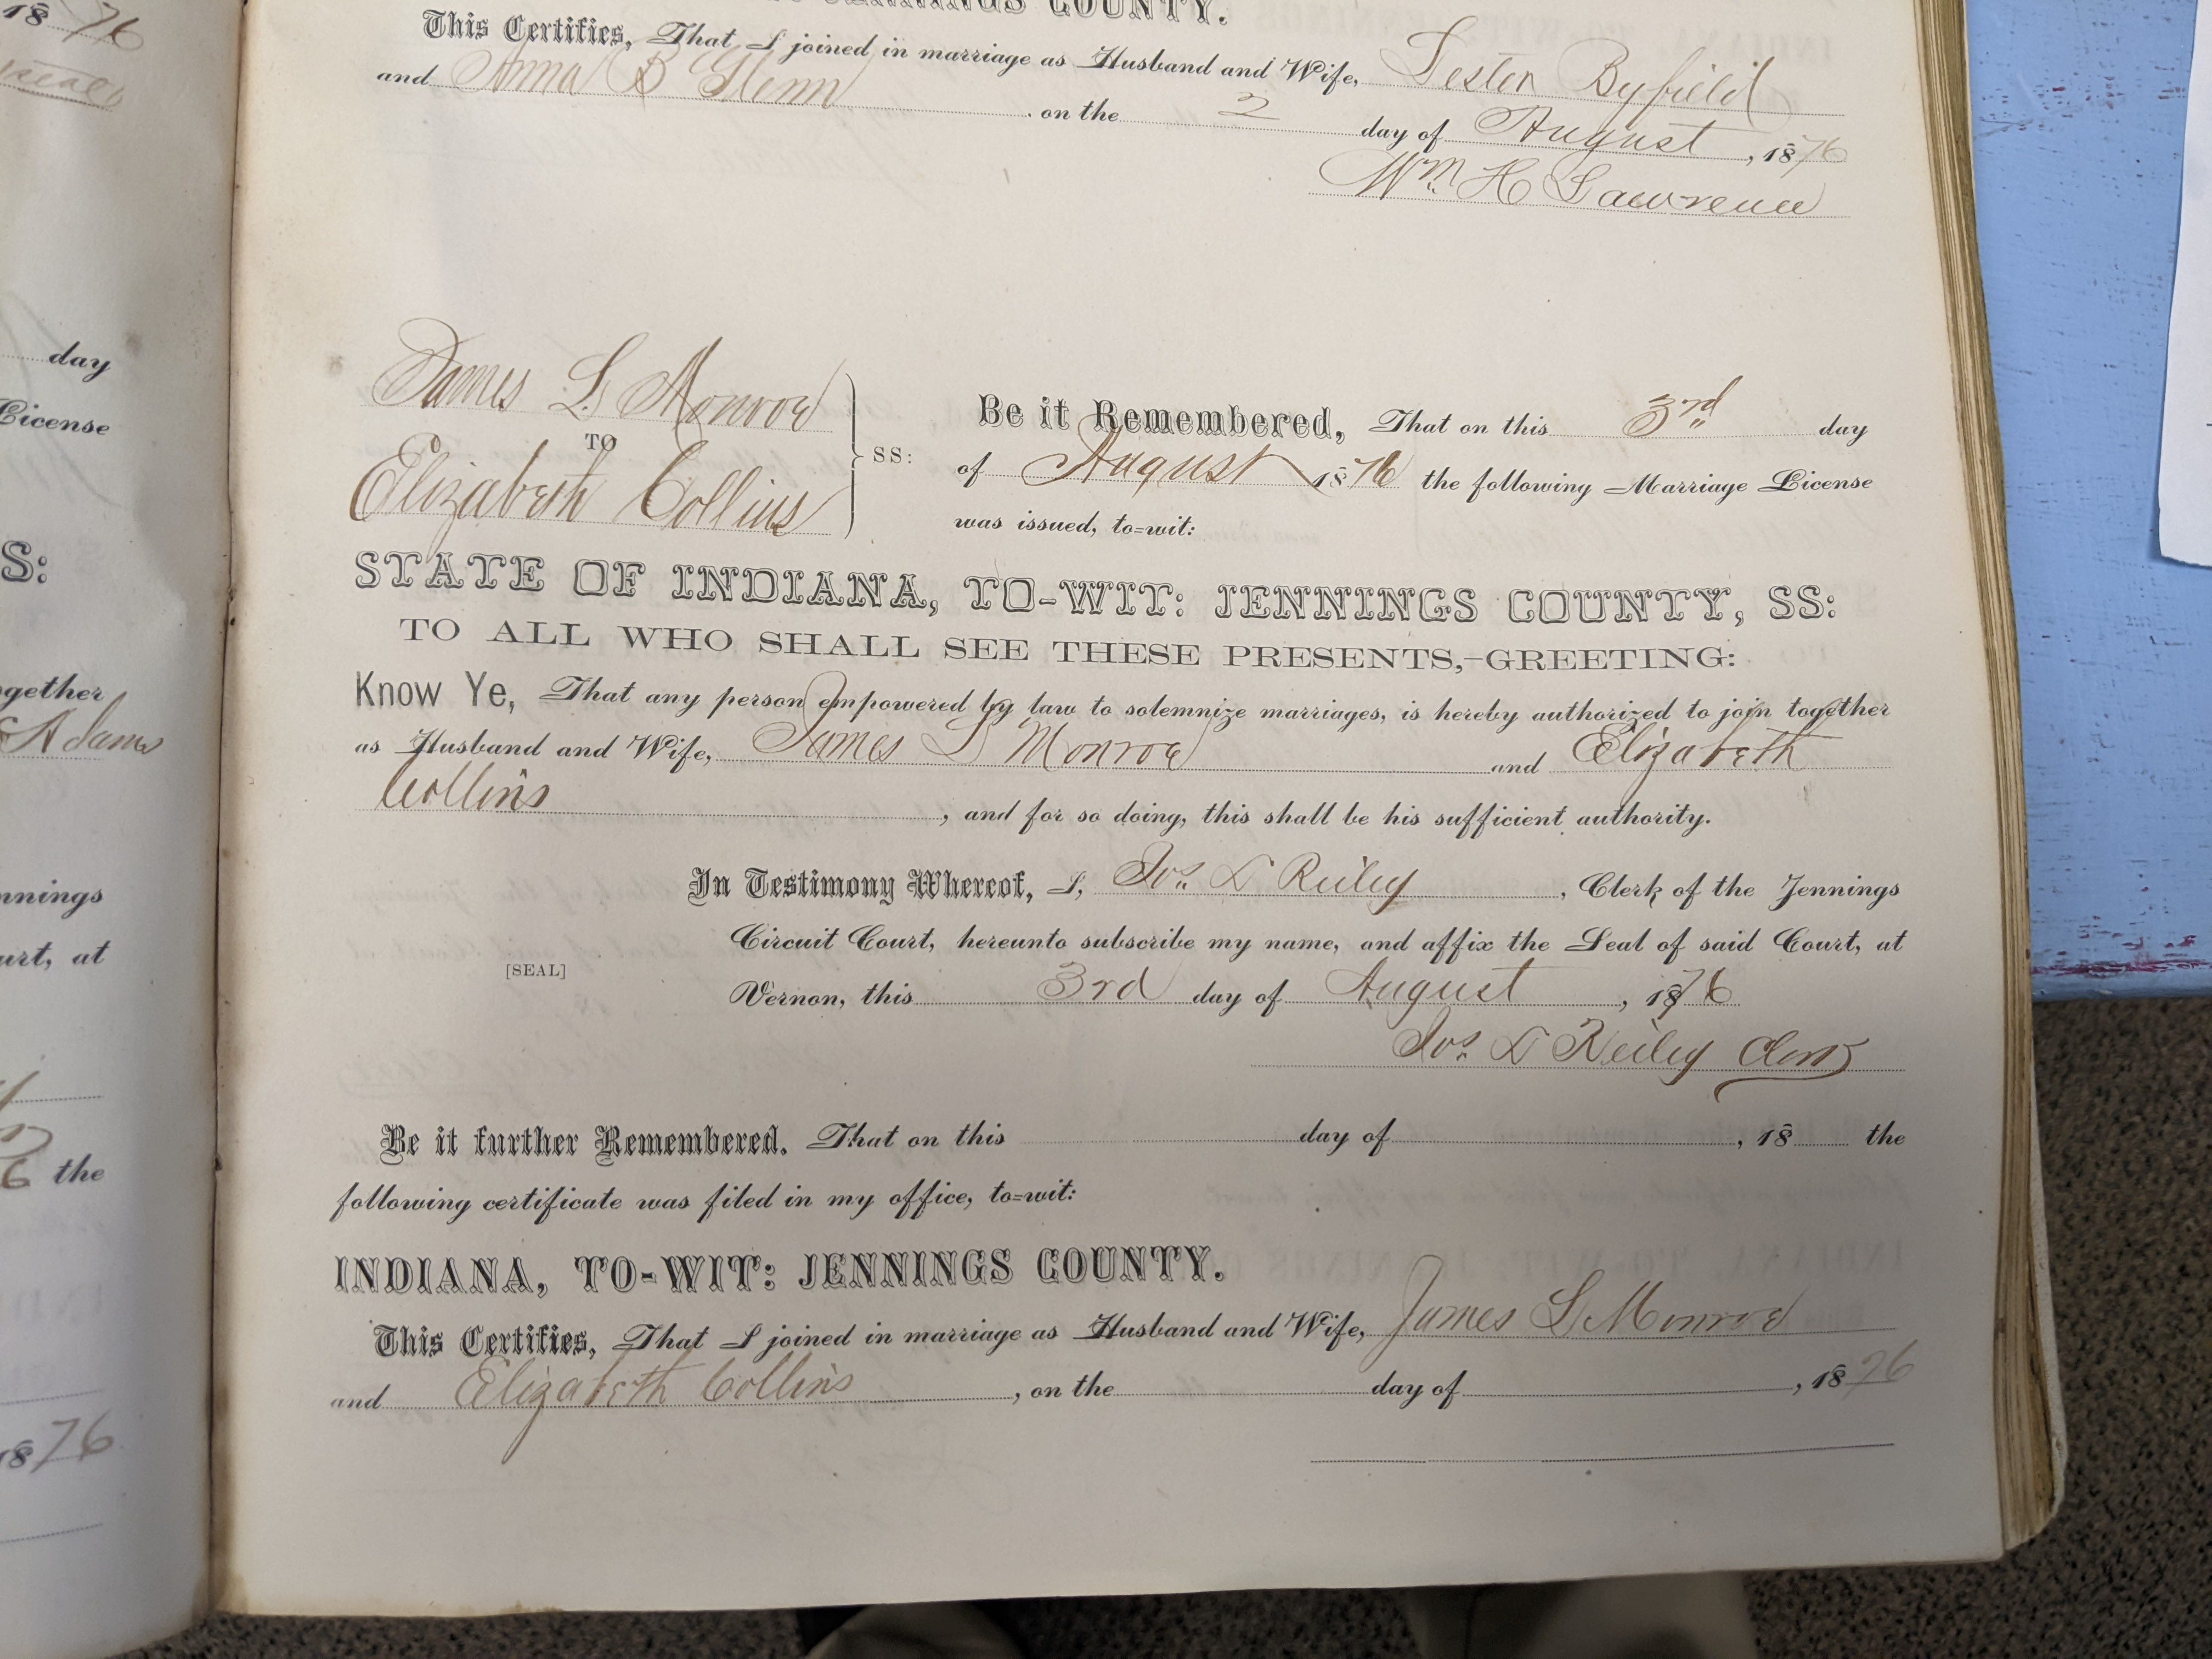 18 76
day
License
S:
gether
Adams
nnings
urt, at
6 the
18 76
JENNINGS COUNTY.
This Certifies, That I joined in marriage as Husband and Wife, Lester Byfield
and Anna B Glenn on the 2 day of August, 1876
Wm H Lawrence
James L Monroe
TO
Elizabeth Collins
SS:
Be it Remembered, That on this 3rd day
of August 1876 the following Marriage License
was issued, to=wit:
STATE OF INDIANA, TO-WIT: JENNINGS COUNTY, SS:
TO ALL WHO SHALL SEE THESE PRESENTS,-GREETING:
Know Ye, That any person empowered by law to solemnize marriages, is hereby authorized to join together
as Husband and Wife, James L Monroe and Elizabeth
Collins, and for so doing, this shall be his sufficient authority.
In Testimony Whereof, I, Jos. L Reiley, Clerk of the Jennings
Circuit Court, hereunto subscribe my name, and affix the Seal of said Court, at
[SEAL]
Vernon, this 3rd day of August, 1876
Jos. L Reiley Clerk
Be it further Remembered. That on this day of , 18 the
following certificate was filed in my office, to=wit:
INDIANA, TO-WIT: JENNINGS COUNTY.
This Certifies, That I joined in marriage as Husband and Wife, James L Monroe
and Elizabeth Collins, on the day of , 1876